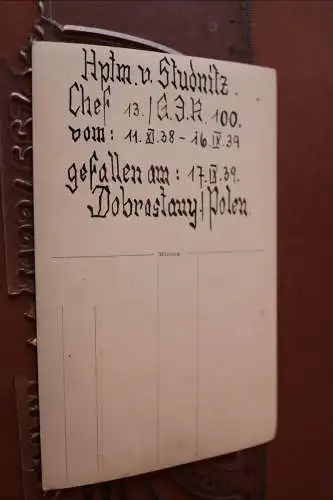 Hptm. v. Studnitz.
Chef 13./G.J.R. 100.
vom: 11.XI.38 - 16.IX.39
gefallen am: 17.IX.39.
Dobrostany/Polen.